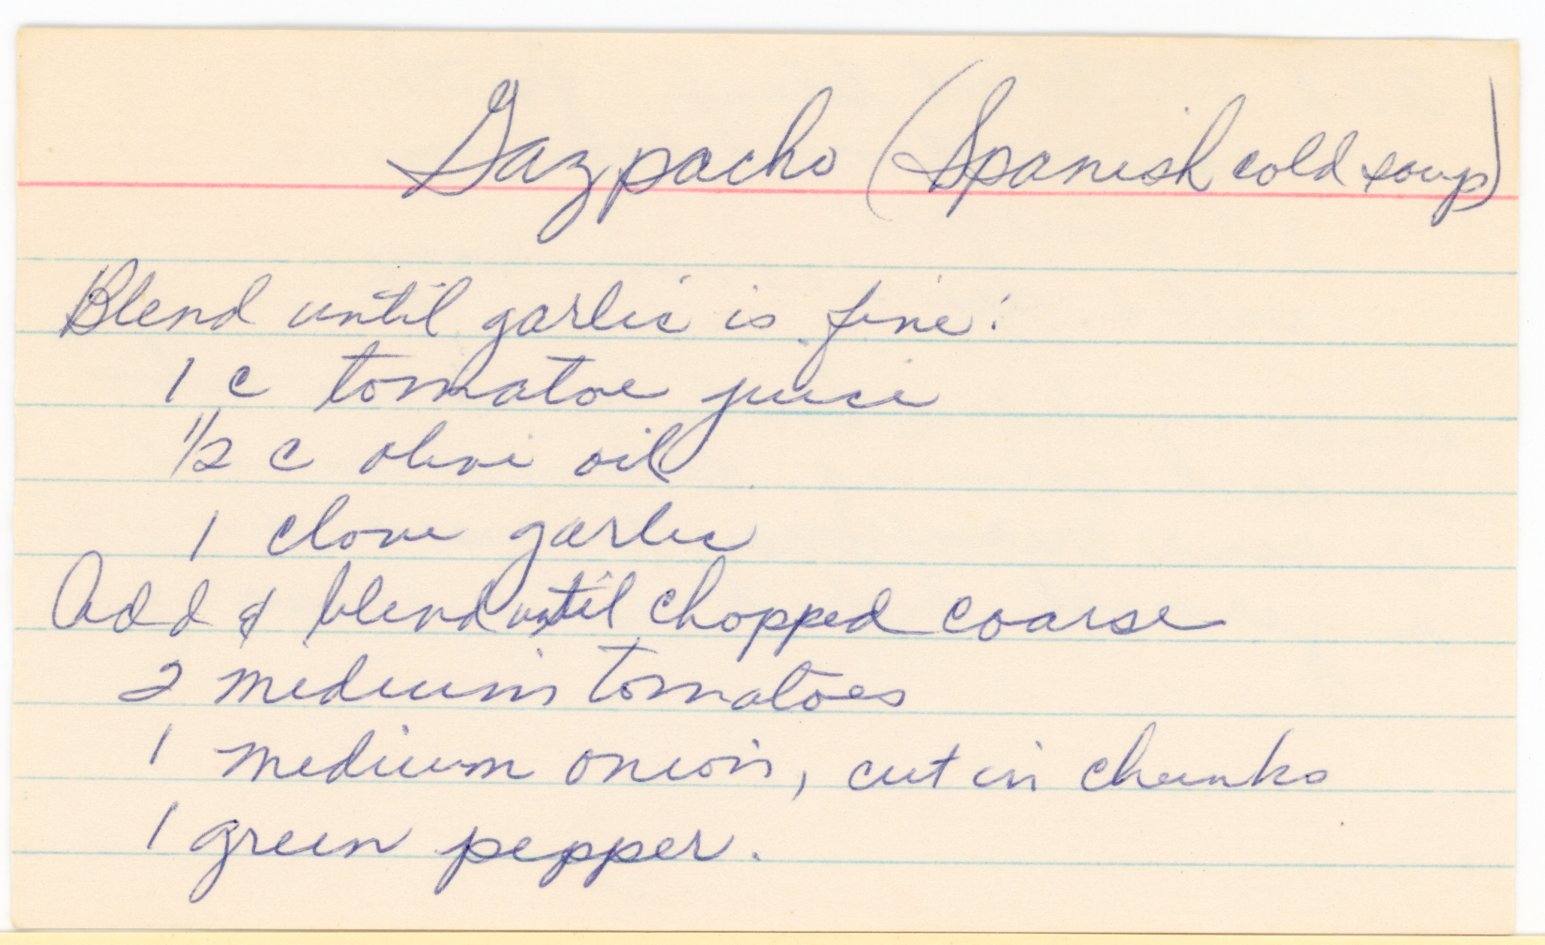 Gazpacho (Spanish cold soup)
Blend until garlic is fine:
1 c tomatoe juice
1/2 c olive oil
1 clove garlic
Add & blend until chopped coarse
2 medium tomatoes
1 medium onion, cut in chunks
1 green pepper.